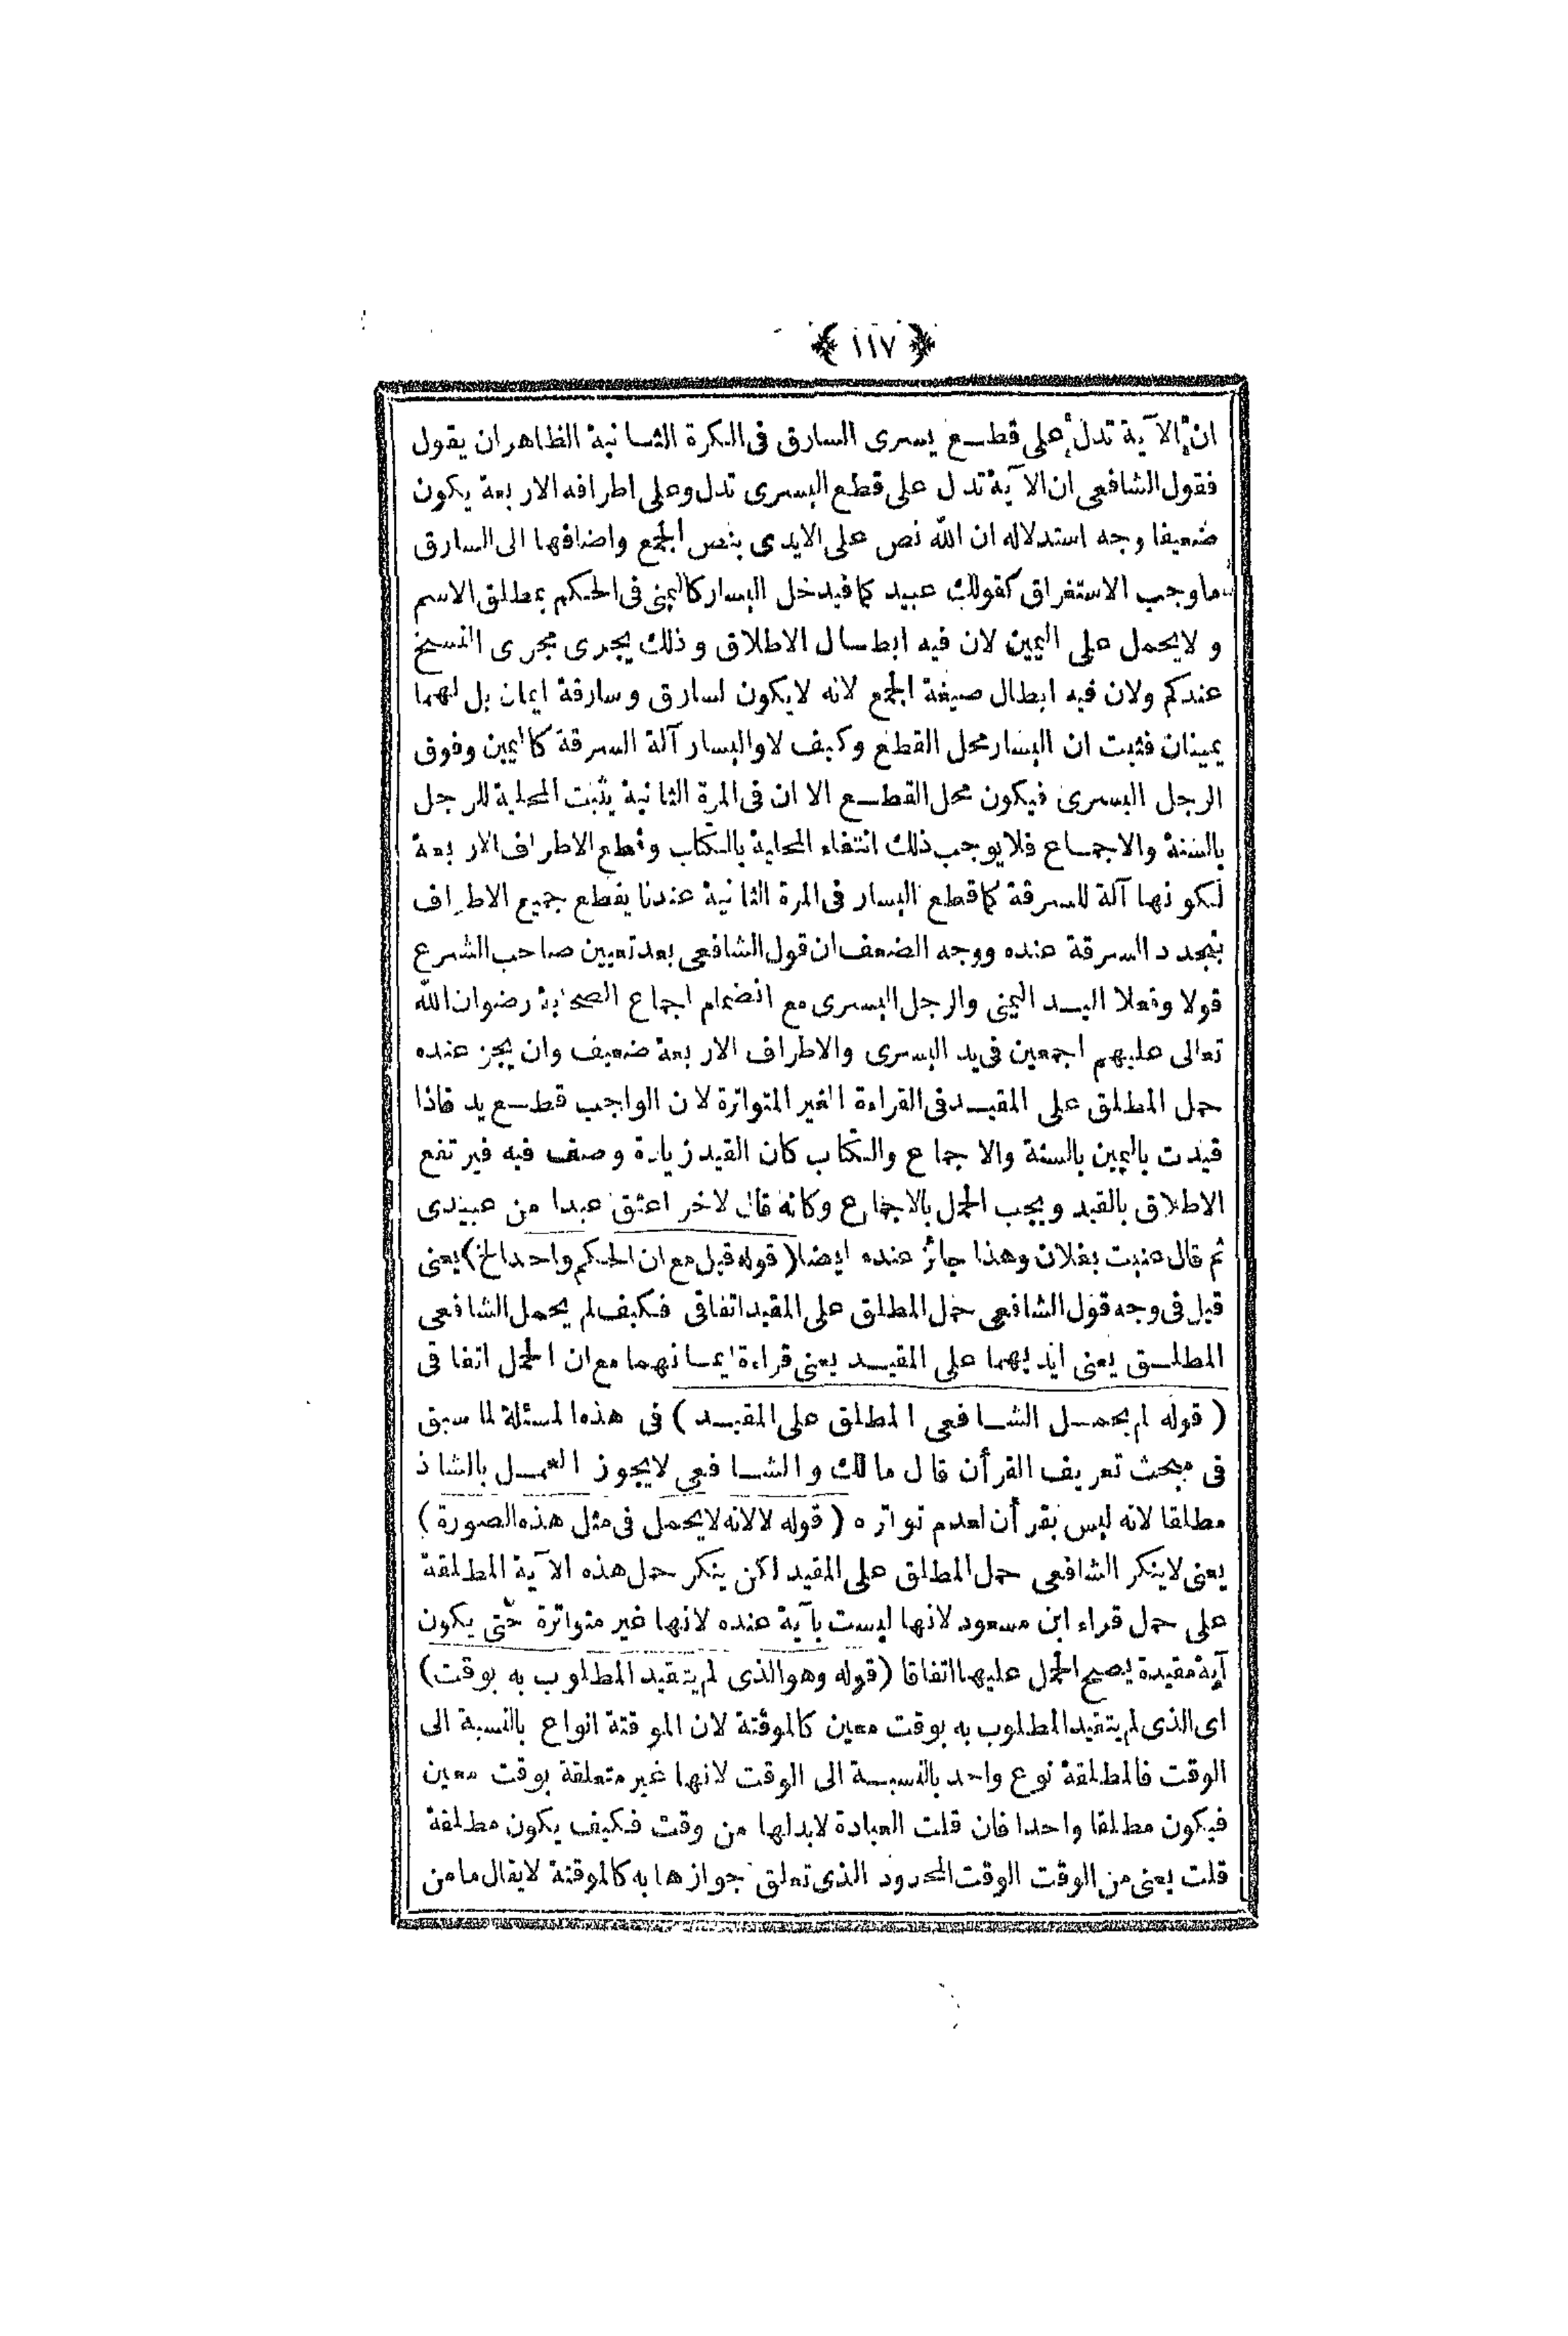 ﴿ ١١٧ ﴾
ان الآية تدل على قطع يسرى السارق فى الكرة الثانية الظاهران يقول
فقول الشافعى ان الآية تدل على قطع اليسرى تدل وعلى اطرافه الاربعة يكون
ضعيفا وجه استدلاله ان الله نص على الايدى بنص الجمع واضافها الى السارق
ما وجب الاستغراق كقولك عبيد كما فيدخل اليسار كاليمنى فى الحكم بمطلق الاسم
و لايحمل على اليمين لان فيه ابطال الاطلاق وذلك يجرى مجرى النسخ
عندكم ولان فيه ابطال صيغة الجمع لانه لايكون لسارق وسارقة ايمان بل لهما
يمينان فثبت ان اليسار محل القطع وكيف لا واليسار آلة السرقة كاليمين وفوق
الرجل اليسرى فيكون محل القطع الا ان فى المرة الثانية يثبت المحلية للرجل
بالسنة والاجماع فلا يوجب ذلك انتفاء المحلية بالكتاب وقطع الاطراف الاربعة
لكونها آلة للسرقة كما قطع اليسار فى المرة الثانية عندنا يقطع جميع الاطراف
بتجدد السرقة عنده ووجه الضعف ان قول الشافعى بعد تعيين صاحب الشرع
قولا وفعلا اليد اليمنى والرجل اليسرى مع انضمام اجماع الصحابة رضوان الله
تعالى عليهم اجمعين فى يد اليسرى والاطراف الاربعة ضعيف وان يجز عنده
حمل المطلق على المقيد فى القراءة الغير المتواترة لان الواجب قطع يد فاذا
قيدت باليمين بالسنة والاجماع والكتاب كان القيد زيادة وصف فيه فيرتفع
الاطلاق بالقيد ويجب الحمل بالاجماع وكانه قال لاخر اعتق عبدا من عبيدى
ثم قال عنيت بفلان وهذا جائز عنده ايضا (قوله قيل مع ان الحكم واحد الخ) يعنى
قيل فى وجه قول الشافعى حمل المطلق على المقيد اتفاقى فكيف لم يحمل الشافعى
المطلق يعنى ايديهما على المقيد يعنى قراءة ايمانهما مع ان الحمل اتفاقى
(قوله لم يحمل الشافعى المطلق على المقيد) فى هذه المسئلة لما سبق
فى مبحث تعريف القرأن قال مالك والشافعى لايجوز العمل بالشاذ
مطلقا لانه ليس بقرأن لعدم تواتره (قوله لا لانه لايحمل فى مثل هذه الصورة)
يعنى لاينكر الشافعى حمل المطلق على المقيد لكن ينكر حمل هذه الآية المطلقة
على حمل قراء ابن مسعود لانها ليست بآية عنده لانها غير متواترة حتى يكون
آية مقيدة يصح الحمل عليها اتفاقا (قوله وهو الذى لم يتقيد المطلوب به بوقت)
اى الذى لم يتقيد المطلوب به بوقت معين كالموقتة لان الموقتة انواع بالنسبة الى
الوقت فالمطلقة نوع واحد بالنسبة الى الوقت لانها غير متعلقة بوقت معين
فيكون مطلقا واحدا فان قلت العبادة لابدلها من وقت فكيف يكون مطلقة
قلت يعنى من الوقت الوقت المحدود الذى تعلق جوازها به كالموقتة لايقال ما من